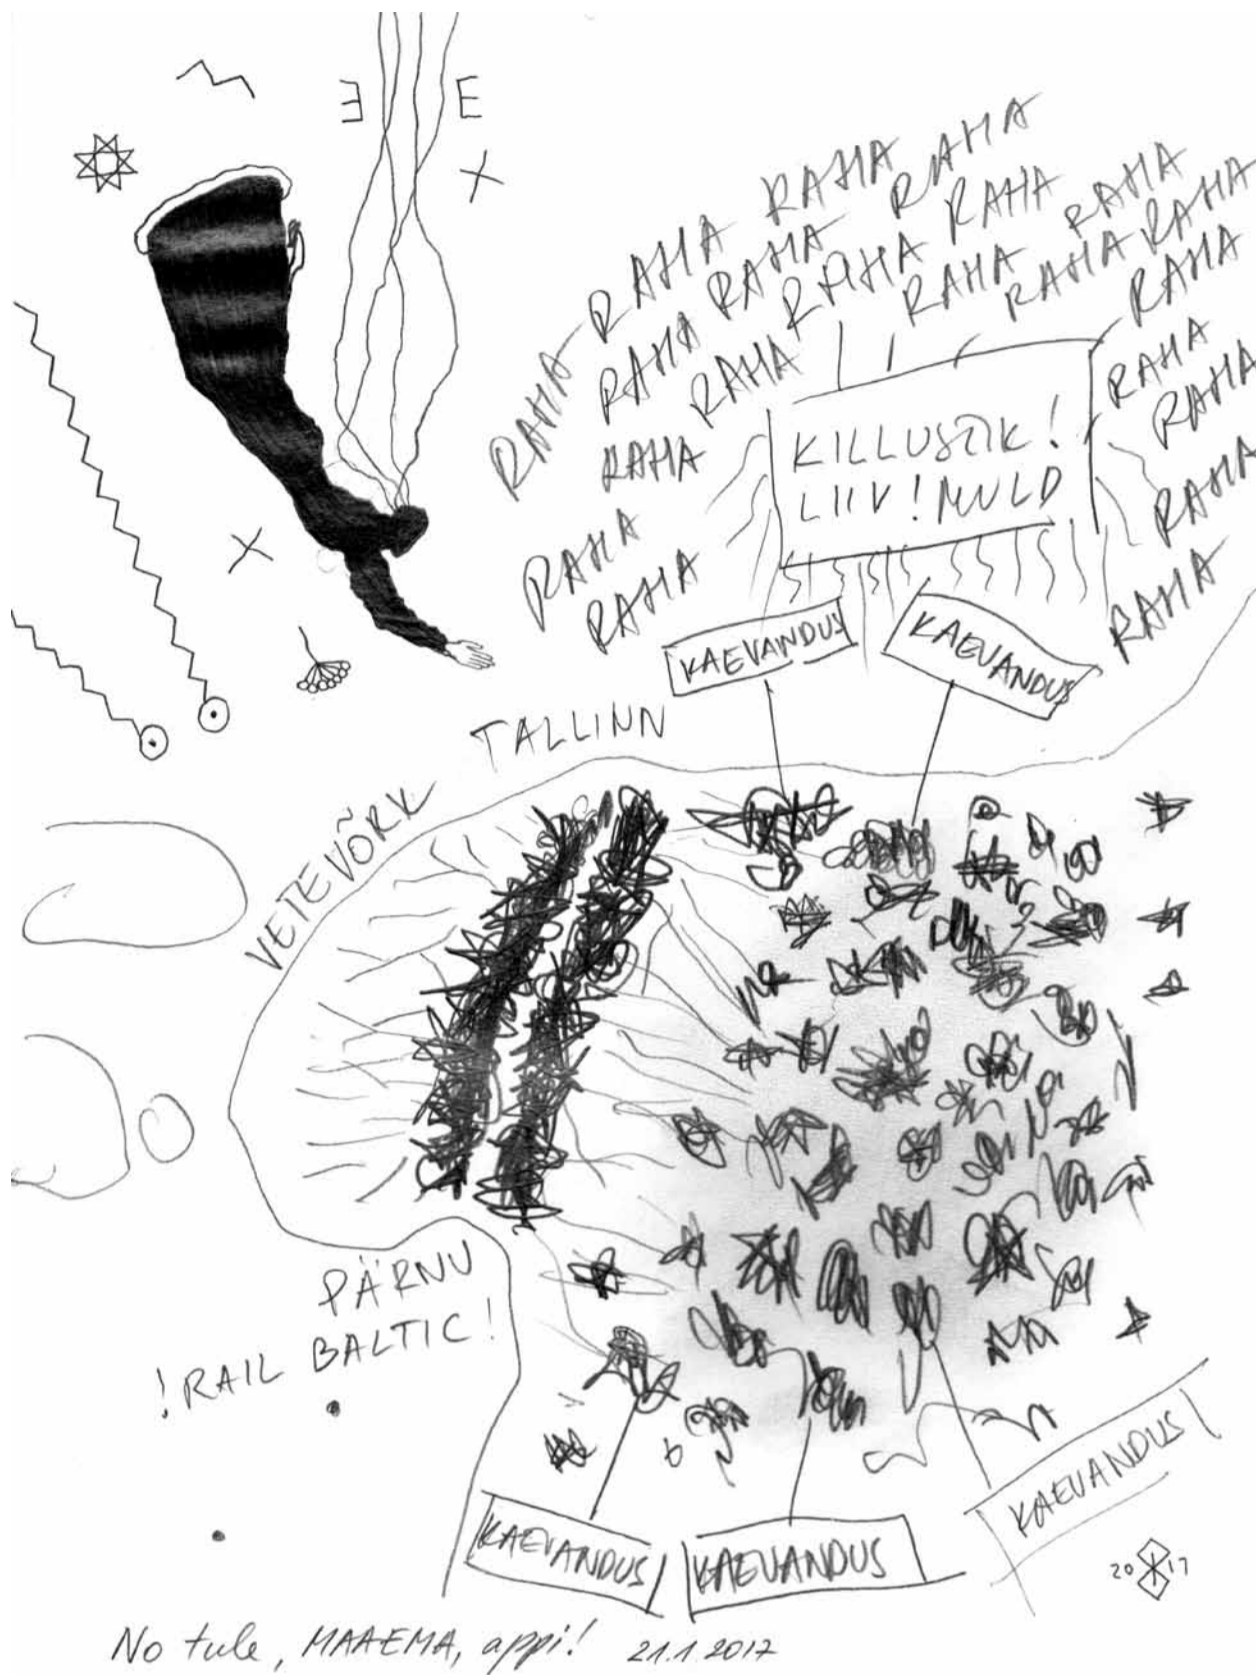 E E
RAHA RAHA RAHA RAHA
RAHA RAHA RAHA RAHA RAHA
RAHA RAHA RAHA RAHA RAHA
RAHA RAHA RAHA
RAHA RAHA
RAHA RAHA
RAHA RAHA
KILLUSTIK!
LIIV! MULD
KAEVANDUS
KAEVANDUS
TALLINN
VETEVÕRK
PÄRNU
!RAIL BALTIC!
KAEVANDUS
KAEVANDUS
KAEVANDUS
2017
No tule, MAAEMA, appi! 21.1.2017